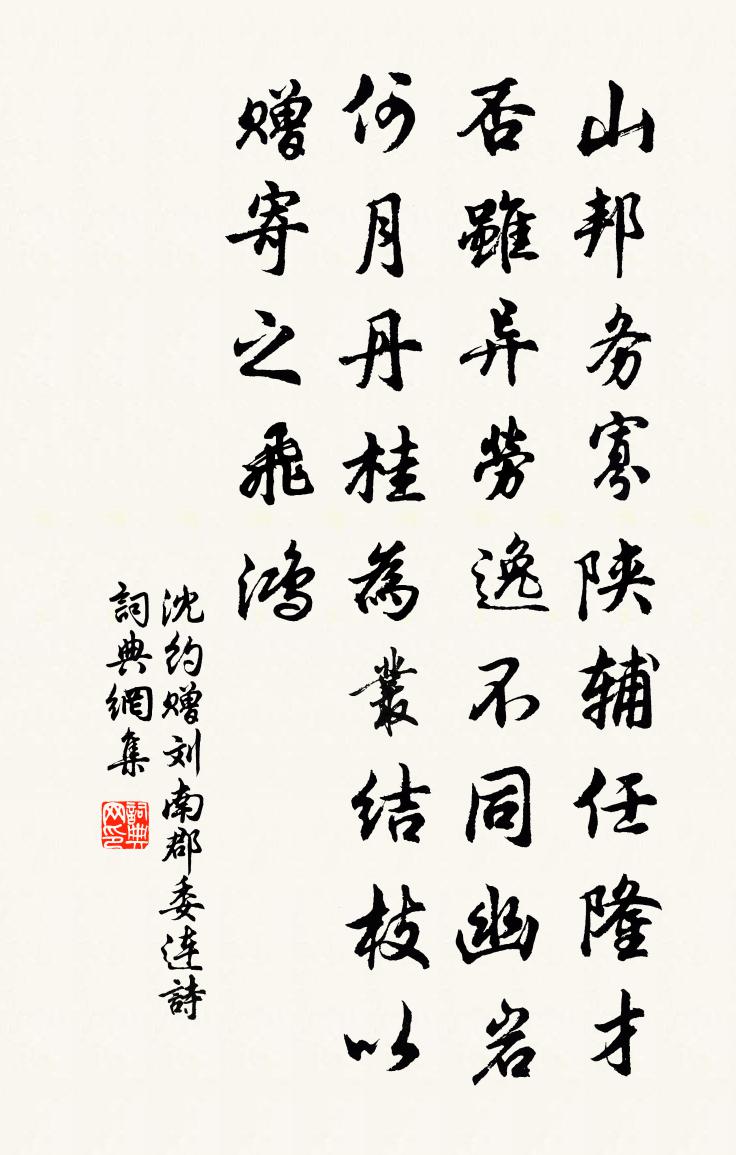 山邦务寡陕辅任隆才
否雖异勞逸不同幽岩
何月丹桂為叢结枝以
赠寄之飛鸿
沈约赠刘南郡委连詩
詞典網集
詞典网印